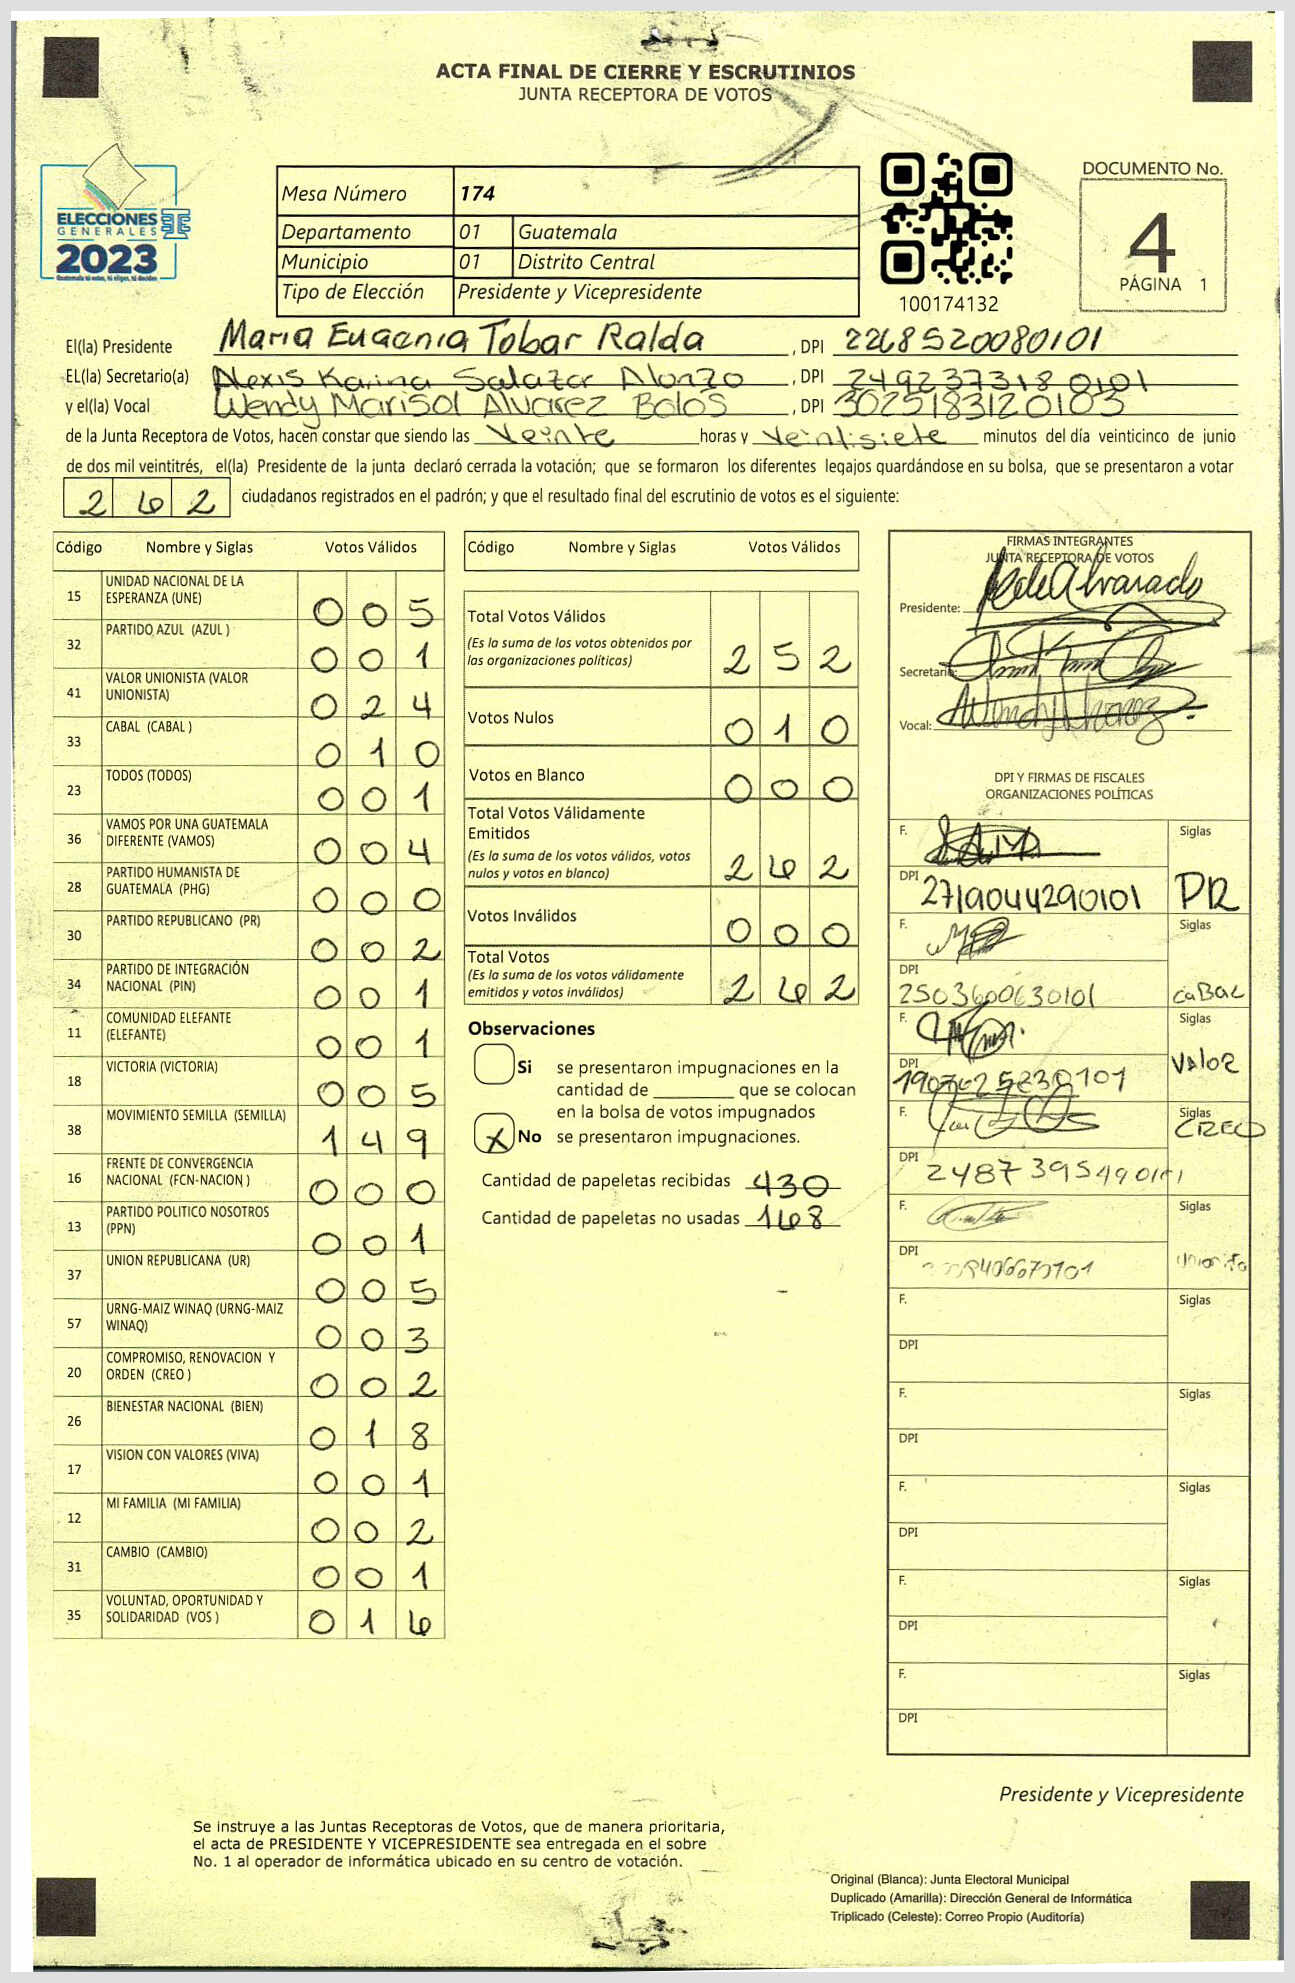 ACTA FINAL DE CIERRE Y ESCRUTINIOS
JUNTA RECEPTORA DE VOTOS
ELECCIONES
GENERALES
2023
Mesa Número 174
Departamento 01 Guatemala
Municipio 01 Distrito Central
Tipo de Elección Presidente y Vicepresidente
100174132
DOCUMENTO No.
4
PÁGINA 1
El(la) Presidente Maria Eugenia Tobar Ralda , DPI 2268520080101
EL(la) Secretario(a) Alexis Karina Salazar Alonzo , DPI 2492373180101
y el(la) Vocal Wendy Marisol Alvarez Bolos , DPI 3025183120103
de la Junta Receptora de Votos, hacen constar que siendo las Veinte horas y Veintisiete minutos del día veinticinco de junio
de dos mil veintitrés, el(la) Presidente de la junta declaró cerrada la votación; que se formaron los diferentes legajos quardándose en su bolsa, que se presentaron a votar
262 ciudadanos registrados en el padrón; y que el resultado final del escrutinio de votos es el siguiente:
Código Nombre y Siglas Votos Válidos
15 UNIDAD NACIONAL DE LA ESPERANZA (UNE) 005
32 PARTIDO AZUL (AZUL ) 001
41 VALOR UNIONISTA (VALOR UNIONISTA) 024
33 CABAL (CABAL ) 010
23 TODOS (TODOS) 001
36 VAMOS POR UNA GUATEMALA DIFERENTE (VAMOS) 004
28 PARTIDO HUMANISTA DE GUATEMALA (PHG) 000
30 PARTIDO REPUBLICANO (PR) 002
34 PARTIDO DE INTEGRACIÓN NACIONAL (PIN) 001
11 COMUNIDAD ELEFANTE (ELEFANTE) 001
18 VICTORIA (VICTORIA) 005
38 MOVIMIENTO SEMILLA (SEMILLA) 149
16 FRENTE DE CONVERGENCIA NACIONAL (FCN-NACION ) 000
13 PARTIDO POLITICO NOSOTROS (PPN) 001
37 UNION REPUBLICANA (UR) 005
57 URNG-MAIZ WINAQ (URNG-MAIZ WINAQ) 003
20 COMPROMISO, RENOVACION Y ORDEN (CREO ) 002
26 BIENESTAR NACIONAL (BIEN) 018
17 VISION CON VALORES (VIVA) 001
12 MI FAMILIA (MI FAMILIA) 002
31 CAMBIO (CAMBIO) 001
35 VOLUNTAD, OPORTUNIDAD Y SOLIDARIDAD (VOS ) 016
Código Nombre y Siglas Votos Válidos
Total Votos Válidos
(Es la suma de los votos obtenidos por
las organizaciones políticas) 252
Votos Nulos 010
Votos en Blanco 000
Total Votos Válidamente
Emitidos
(Es la suma de los votos válidos, votos
nulos y votos en blanco) 262
Votos Inválidos 000
Total Votos
(Es la suma de los votos válidamente
emitidos y votos inválidos) 262
Observaciones
Si se presentaron impugnaciones en la
cantidad de ________ que se colocan
en la bolsa de votos impugnados
X No se presentaron impugnaciones.
Cantidad de papeletas recibidas 430
Cantidad de papeletas no usadas 168
FIRMAS INTEGRANTES
JUNTA RECEPTORA DE VOTOS
Presidente:
Secretario:
Vocal:
DPI Y FIRMAS DE FISCALES
ORGANIZACIONES POLÍTICAS
F. Siglas
DPI 2719044290101 PR
F. Siglas
DPI 2503600630101 CABAL
F. Siglas
DPI VALOR
F. Siglas CREO
DPI
F. Siglas
DPI
F. Siglas
DPI
F. Siglas
DPI
F. Siglas
DPI
F. Siglas
DPI
F. Siglas
DPI
Presidente y Vicepresidente
Se instruye a las Juntas Receptoras de Votos, que de manera prioritaria,
el acta de PRESIDENTE Y VICEPRESIDENTE sea entregada en el sobre
No. 1 al operador de informática ubicado en su centro de votación.
Original (Blanca): Junta Electoral Municipal
Duplicado (Amarilla): Dirección General de Informática
Triplicado (Celeste): Correo Propio (Auditoría)